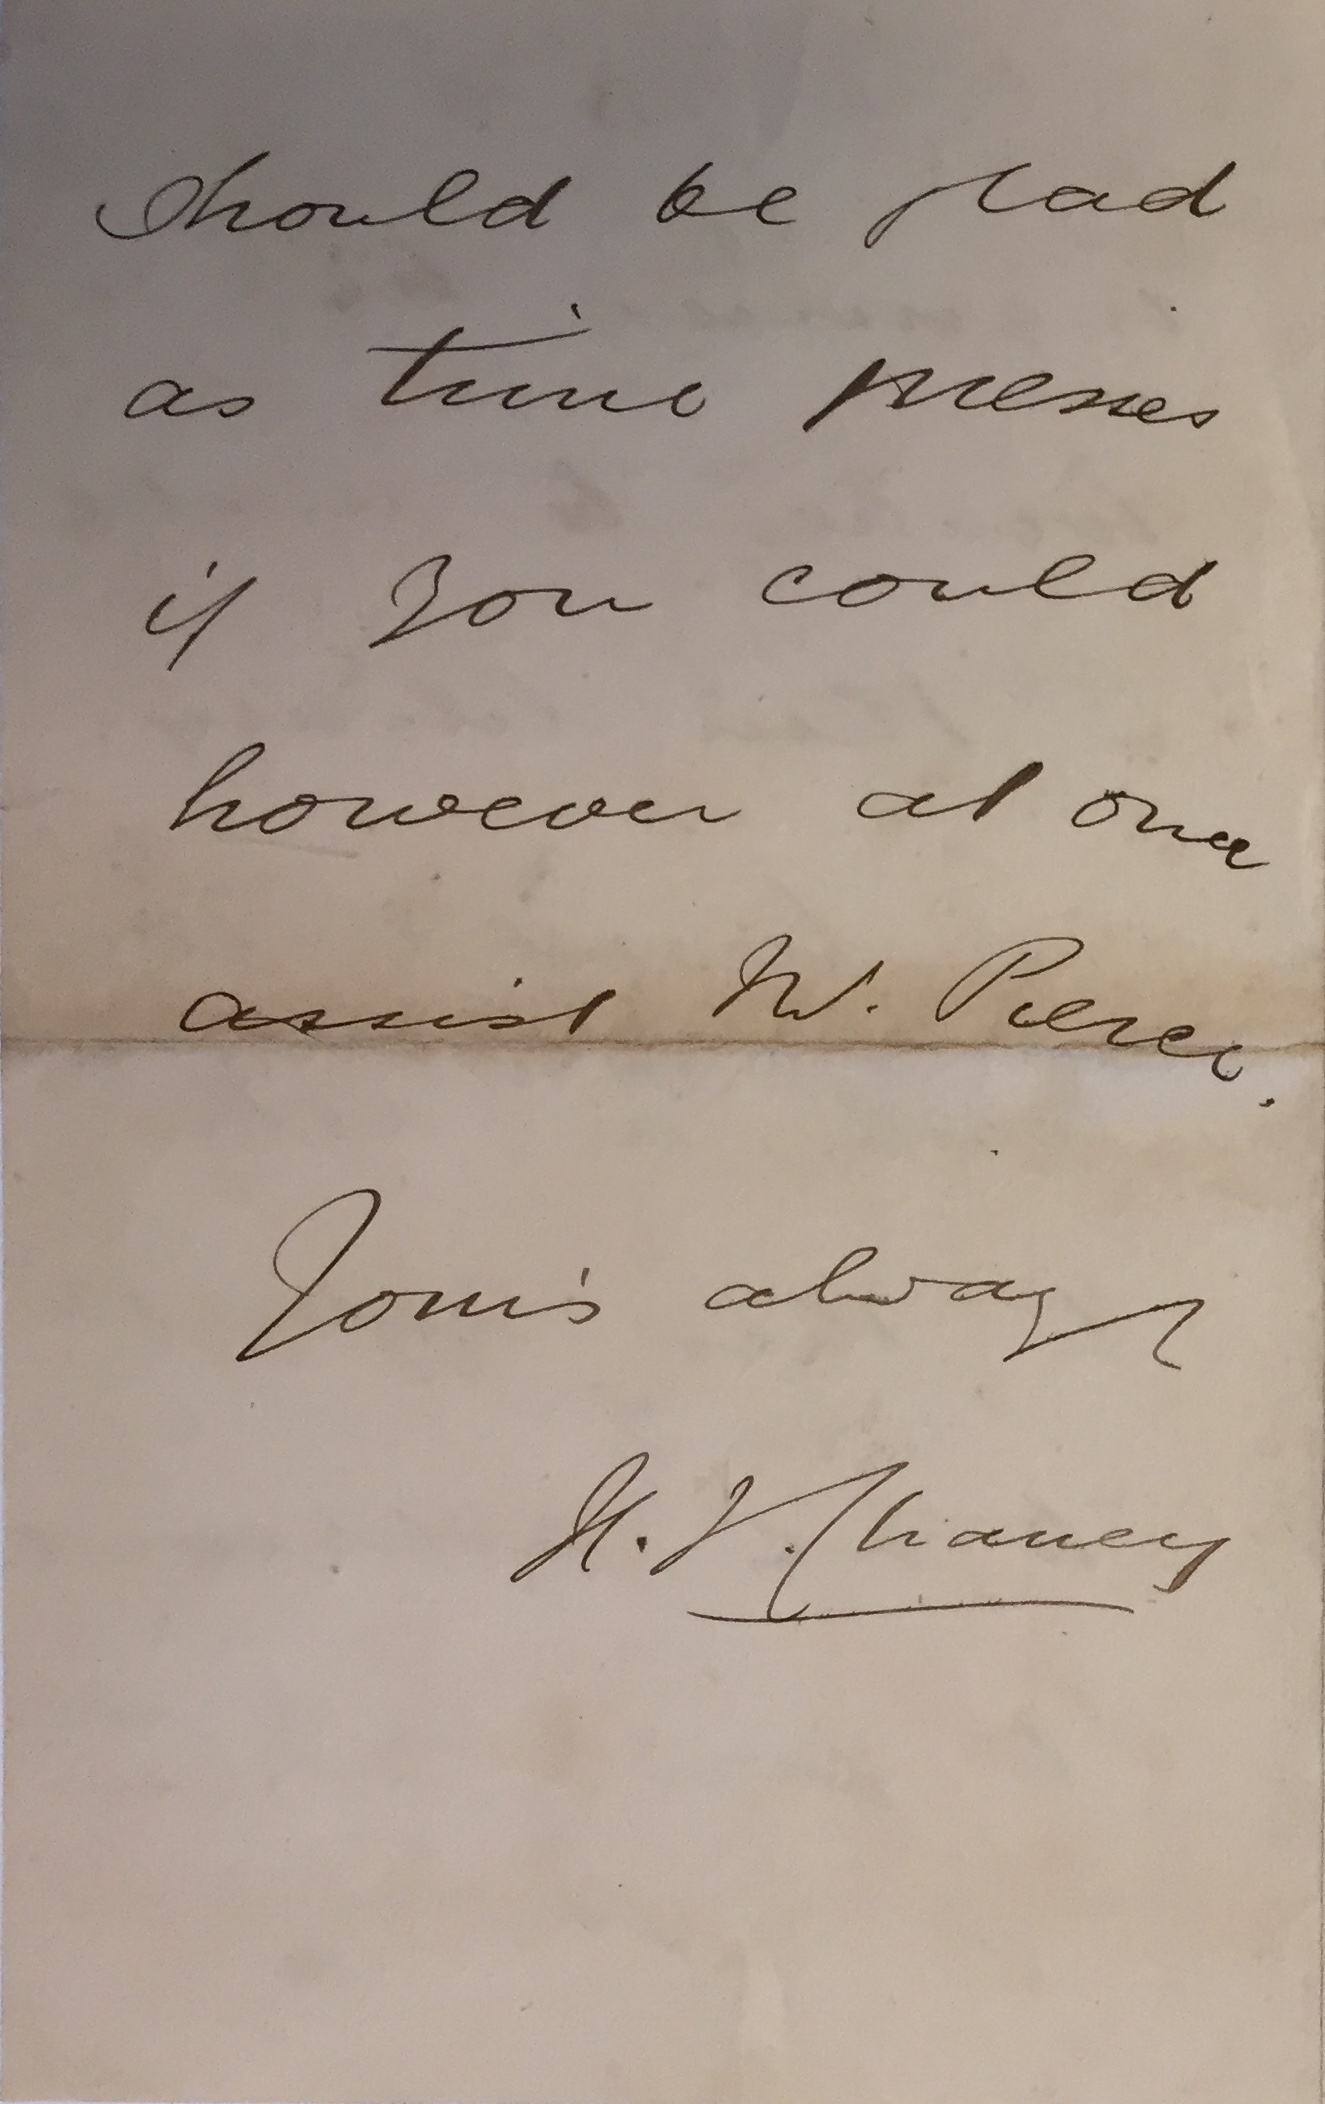 should be glad
as time presses
if you could
however at once
assist Mr. Pierce.
Yours always
H. J. Chaney